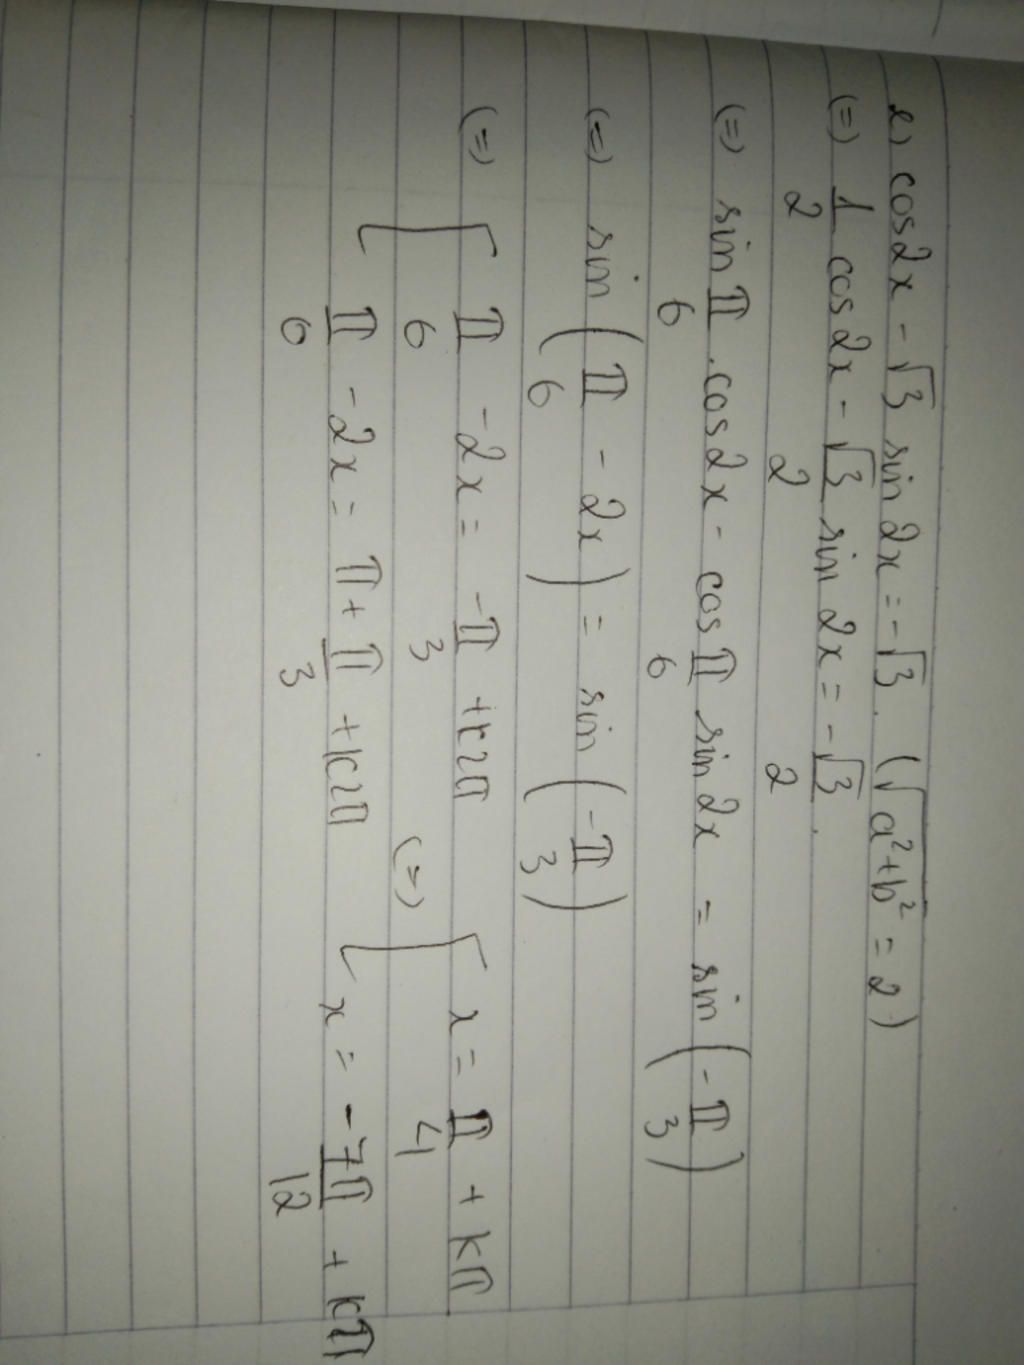 e) cos2x - √3 sin 2x = -√3. (√a²+b² = 2)
(=) 1/2 cos2x - √3/2 sin 2x = -√3/2.
(=) sin π/6 . cos2x - cos π/6 sin 2x = sin (-π/3)
(=) sin (π/6 - 2x) = sin (-π/3)
(=) [ π/6 - 2x = -π/3 + k2π
π/6 - 2x = π + π/3 + k2π
(=) [ x = π/4 + kπ
x = -7π/12 + kπ